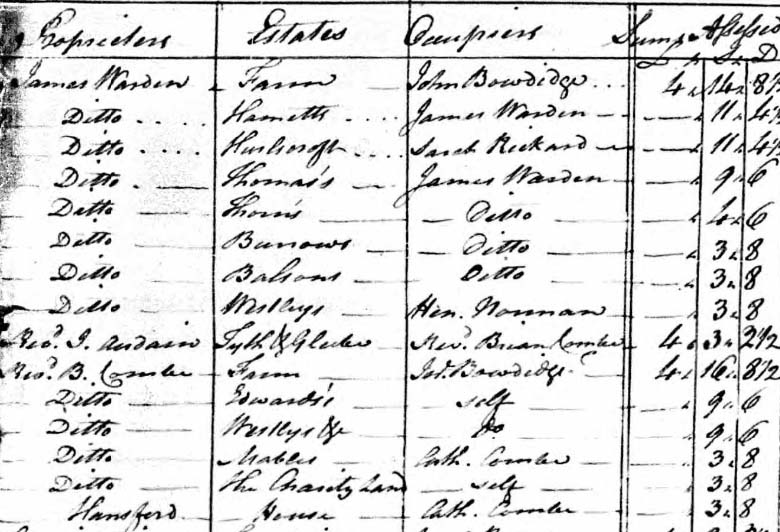 Proprietors Estates Occupiers Sums Assessed
£ S D
James Warden Farm John Bowdidge 4 14 8½
Ditto Hametts James Warden 11 4½
Ditto Hurlscroft Sarah Rickard 11 4½
Ditto Thomas's James Warden 9 6
Ditto Thorn's Ditto 4 6
Ditto Burrows Ditto 3 8
Ditto Balsons Ditto 3 8
Ditto Westleys Hen. Norman 3 8
Revd. J. Audain Tyth & Glebe Revd. Brian Combe 4 3 2½
Revd. B. Combe Farm Bowdidge 4 16 8½
Ditto Edwards's self 9 6
Ditto Westleys & Do 9 6
Ditto Mables Cath. Combe 3 8
Ditto the Charity Land self 3 8
Hansford House Cath. Combe 3 8